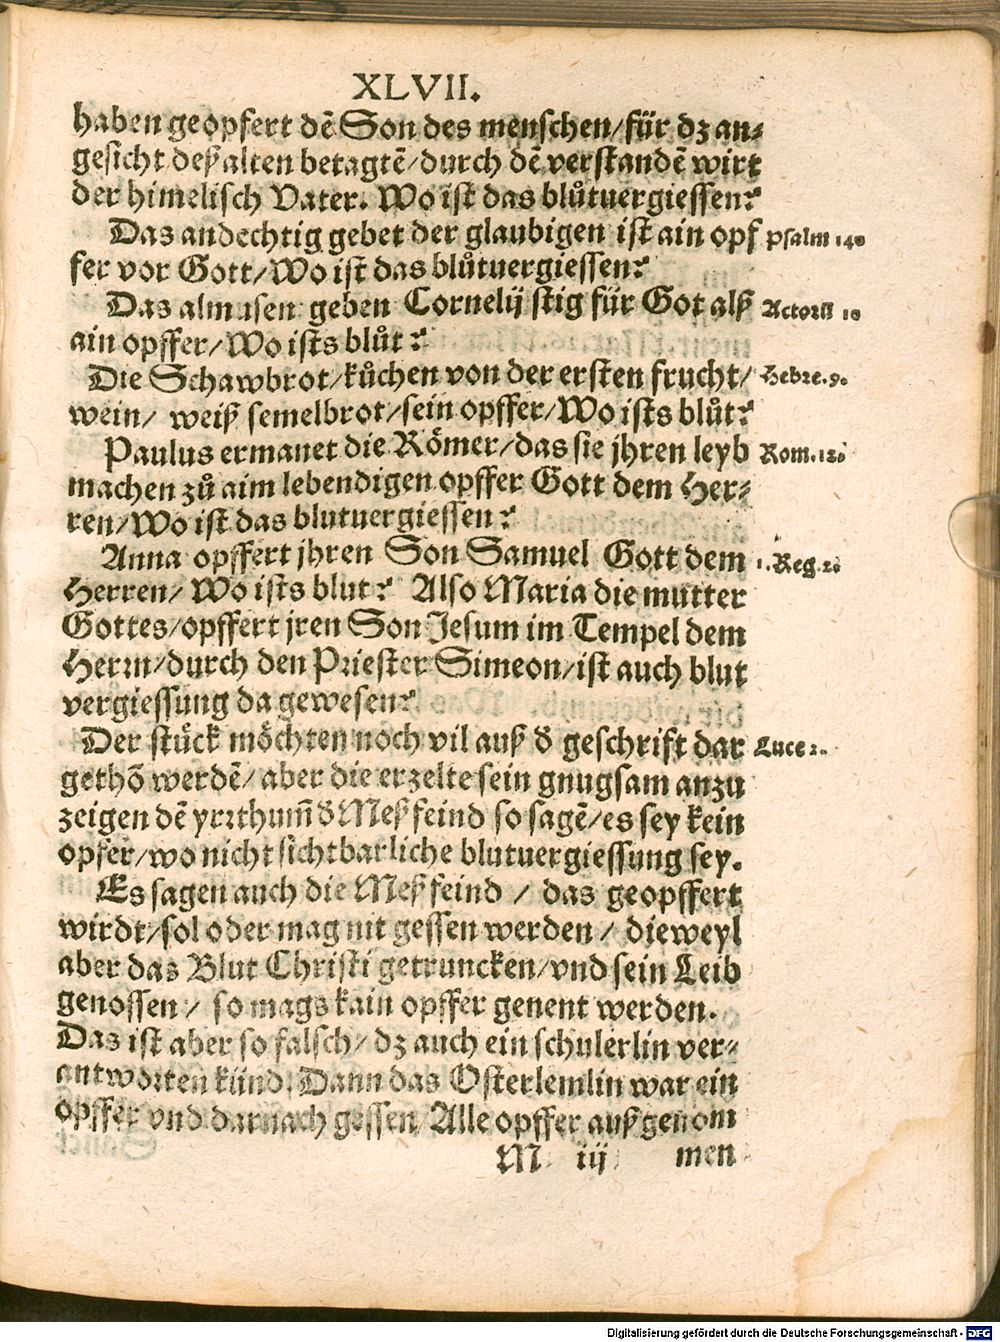 XLVII.
haben geopfert dē Son des menschen/für dz an⸗
gesicht deß alten betagtē/durch dē verstandē wirt
der himelisch Vater. Wo ist das blůtuergiessen?
Das andechtig gebet der glaubigen ist ain opf psalm 140
fer vor Gott/Wo ist das blůtuergiessen?
Das almusen geben Cornelij stig für Got alß Actorū 10
ain opffer/Wo ists blůt?
Die Schawbrot/kůchen von der ersten frucht/ Hebre.9.
wein/ weiß semelbrot/sein opffer/Wo ists blůt?
Paulus ermanet die Römer/das sie jhren leyb Rom.12.
machen zů aim lebendigen opffer Gott dem Her⸗
ren/Wo ist das blutuergiessen?
Anna opffert jhren Son Samuel Gott dem 1.Reg.2.
Herren/ Wo ists blut? Also Maria die mutter
Gottes/opffert jren Son Jesum im Tempel dem
Herrn/durch den Priester Simeon/ist auch blut
vergiessung da gewesen?
Der stück möchten noch vil auß d̄ geschrift dar Luce 2.
gethō werdē/ aber die erzelte sein gnugsam anzu
zeigen dē yrrthum̄ d̄ Meß feind so sagē/es sey kein
opfer/wo nicht sichtbarliche blutuergiessung sey.
Es sagen auch die Meß feind / das geopffert
wirdt/sol oder mag nit gessen werden / dieweyl
aber das Blut Christi getruncken/vnd sein Leib
genossen/ so mags kain opffer genent werden.
Das ist aber so falsch/ dz auch ein schulerlin ver⸗
antworten künd. Dann das Osterlemlin war ein
opffer vnd darnach gessen. Alle opffer außgenom
M iij men
Digitalisierung gefördert durch die Deutsche Forschungsgemeinschaft - DFG